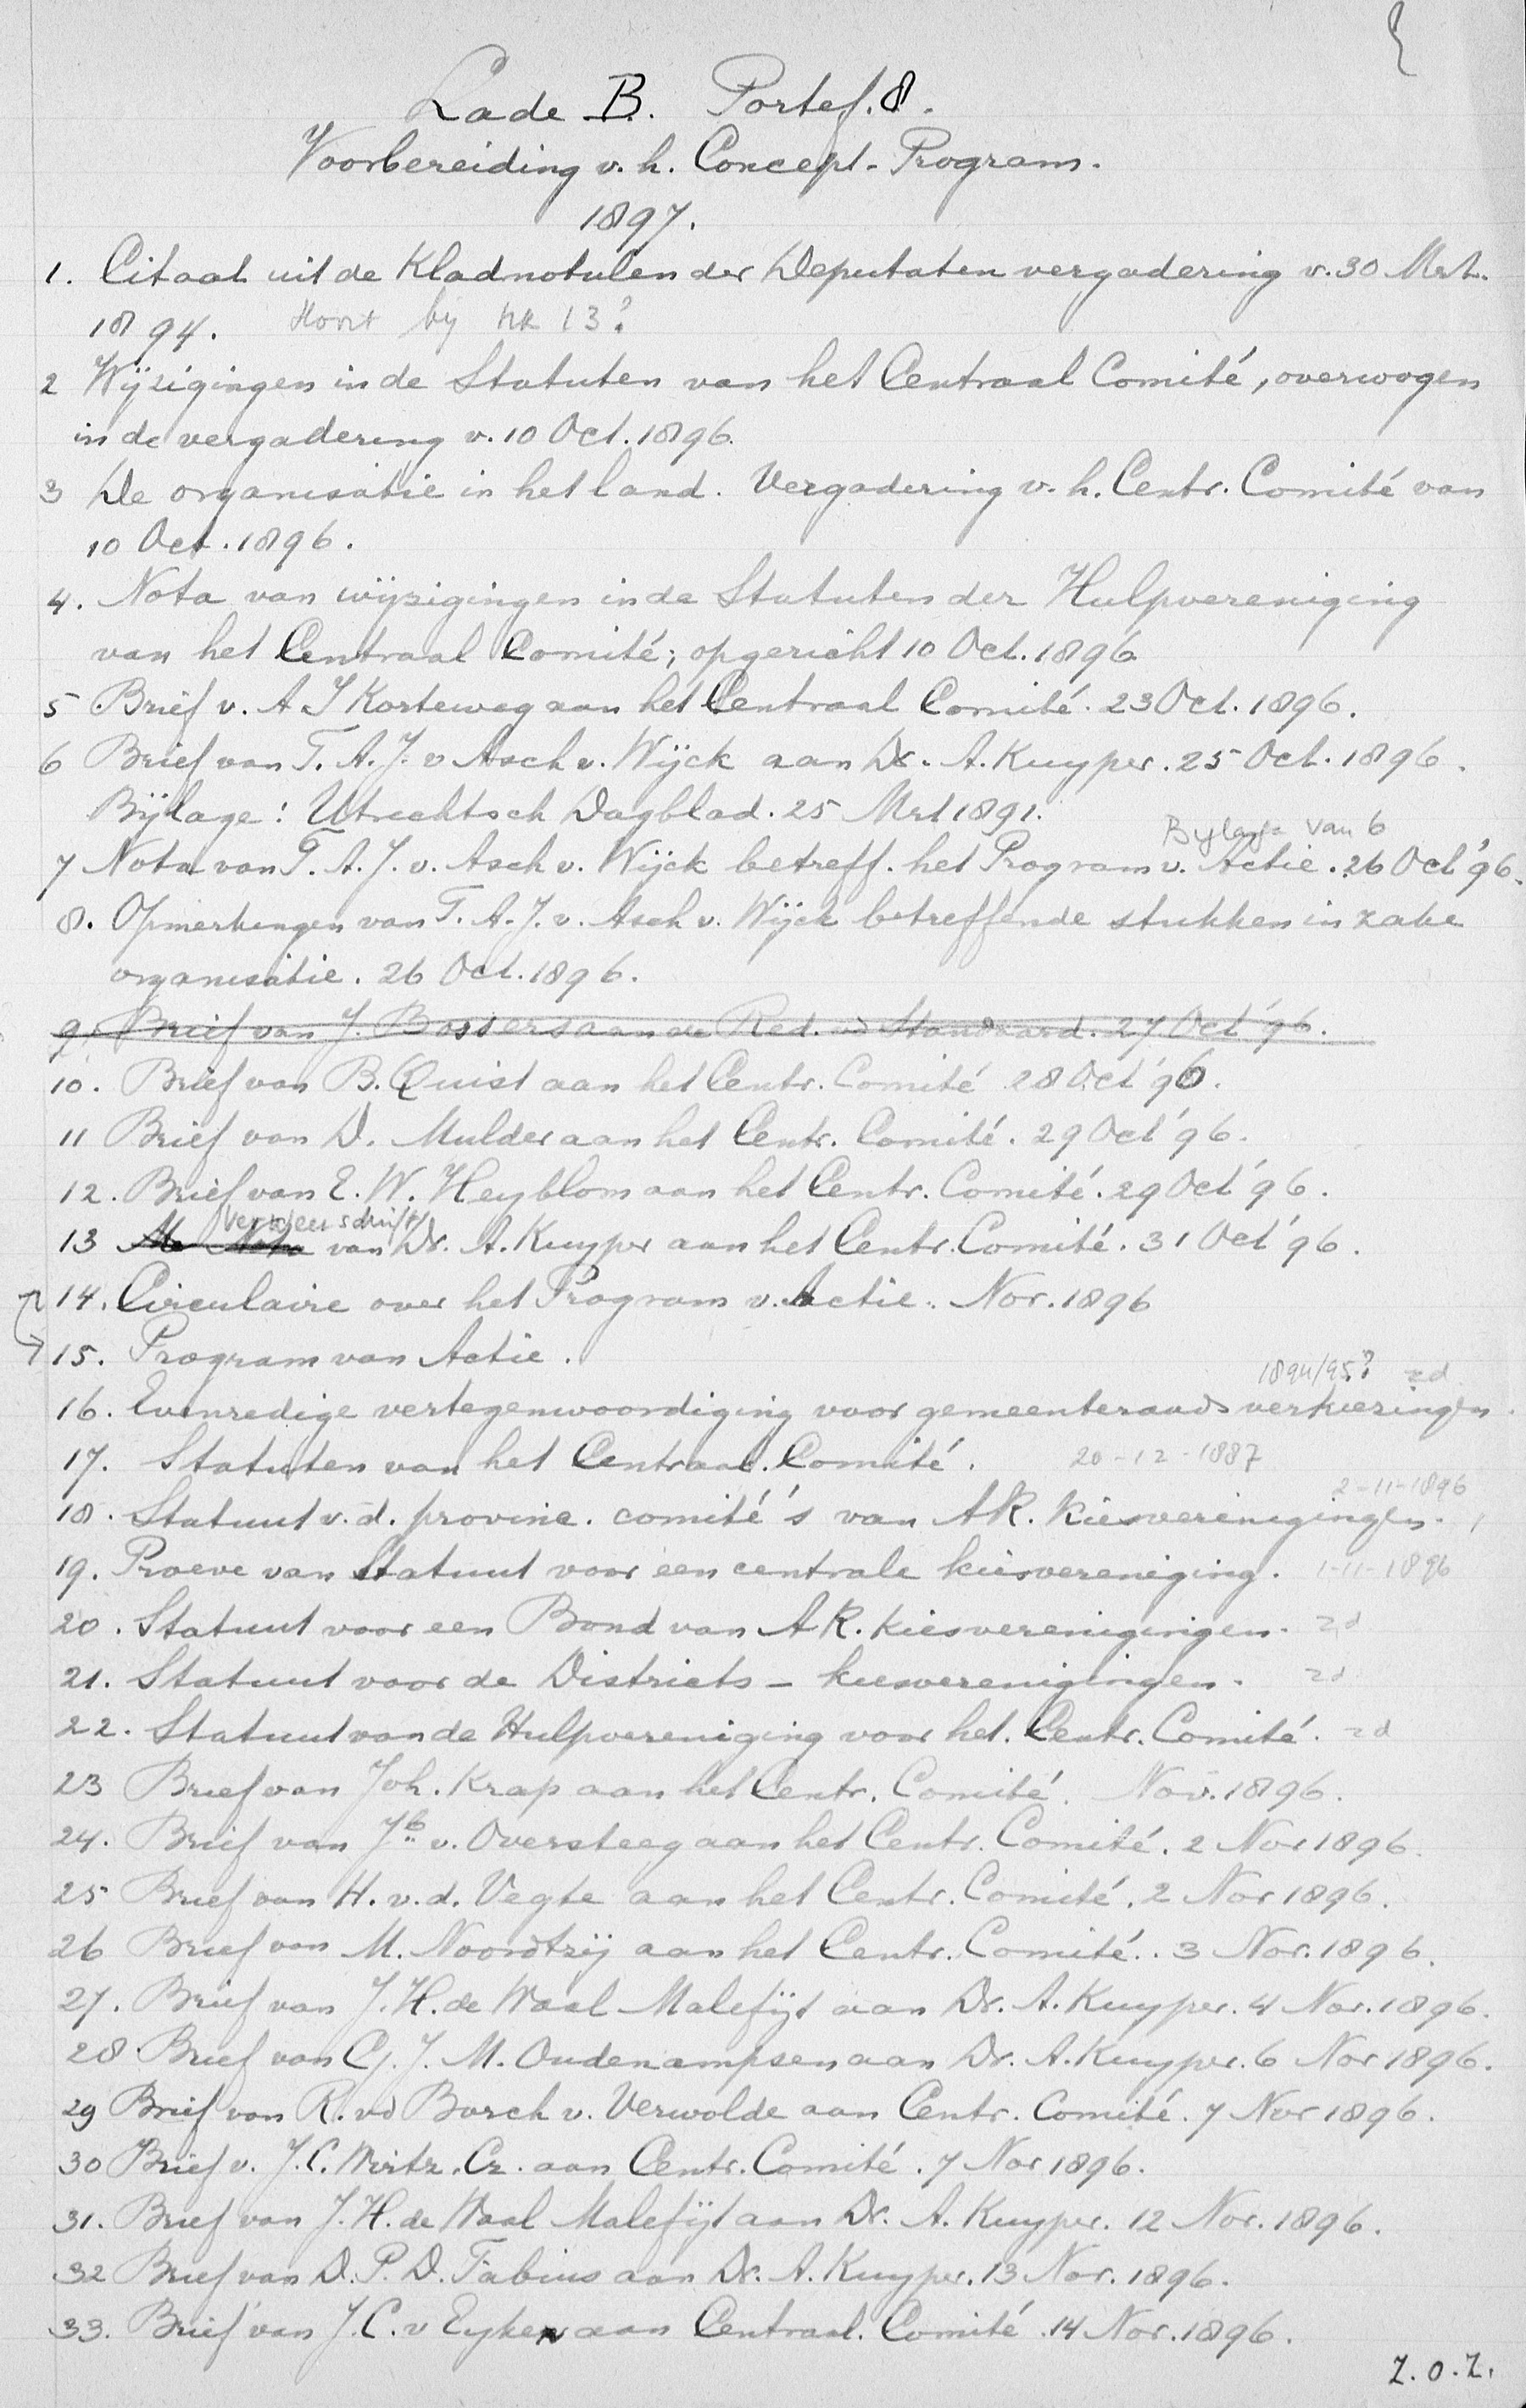 Lade B. Portef. 8.
Voorbereiding v. h. Concept-Program.
1897.
1. Citaat uit de Kladnotulen der Deputaten vergadering v. 30 Mrt.
1894. Hoort bij NR 13?
2 Wijzigingen in de Statuten van het Centraal Comité, overwogen
in de vergadering v. 10 Oct. 1896.
3 De organisatie in het land. Vergadering v. h. Centr. Comité van
10 Oct. 1896.
4. Nota van wijzigingen in de Statuten der Hulpvereniging
van het Centraal Comité; opgericht 10 Oct. 1896
5 Brief v. A J Korteweg aan het Centraal Comité. 23 Oct. 1896.
6 Brief van T. A. J. v Asch v. Wijck aan Dr. A. Kuyper. 25 Oct. 1896.
Bijlage: Utrechtsch Dagblad. 25 Mrt 1891.
Bijlage van 6
7 Nota van T. A. J. v. Asch v. Wijck betreff. het Program v. Actie. 26 Oct '96.
8. Opmerkingen van T. A. J. v. Asch v. Wijck betreffende stukken in zake
organisatie. 26 Oct. 1896.
9. Brief van J. Bossers aan de Red. vd Standaard. 27 Oct '96.
10. Brief van B. Quist aan het Centr. Comité 28 Oct '96.
11 Brief van D. Mulder aan het Centr. Comité. 29 Oct '96.
12. Brief van E. W. Heyblom aan het Centr. Comité. 29 Oct '96.
verweerschrift
13 Nota van Dr. A. Kuyper aan het Centr. Comité. 31 Oct '96.
14. Circulaire over het Program v. Actie. Nov. 1896
15. Program van Actie.
1894/95? zd
16. Evenredige vertegenwoordiging voor gemeenteraads verkiezingen.
17. Statuten van het Centraal Comité. 20-12-1887
2-11-1896
18. Statuut v. d. provinc. comité's van AR. Kiesverenigingen.
19. Proeve van Statuut voor een centrale kiesvereniging. 1-11-1896
20. Statuut voor een Bond van AR. Kiesverenigingen. zd
21. Statuut voor de Districts - kiesverenigingen. zd
22. Statuut van de Hulpvereniging voor het. Centr. Comité. zd
23 Brief van Joh. Krap aan het Centr. Comité. Nov. 1896.
24. Brief van Jb. v. Oversteeg aan het Centr. Comité. 2 Nov 1896.
25 Brief van H. v. d. Vegte aan het Centr. Comité. 2 Nov 1896.
26 Brief van M. Noordtzij aan het Centr. Comité. 3 Nov. 1896.
27. Brief van J. H. de Waal Malefijt aan Dr. A. Kuyper. 4 Nov. 1896.
28 Brief van G. J. M. Oudenampsen aan Dr. A. Kuyper. 6 Nov 1896.
29 Brief van R. vd Borch v. Verwolde aan Centr. Comité. 7 Nov 1896.
30 Brief v. J. C. Wirtz. Cz. aan Centr. Comité. 7 Nov 1896.
31. Brief van J. H. de Waal Malefijt aan Dr. A. Kuyper. 12 Nov. 1896.
32 Brief van D. P. D. Fabius aan Dr. A. Kuyper. 13 Nov. 1896.
33. Brief van J. C. v Eyken aan Centraal. Comité. 14 Nov. 1896.
Z. O. Z.